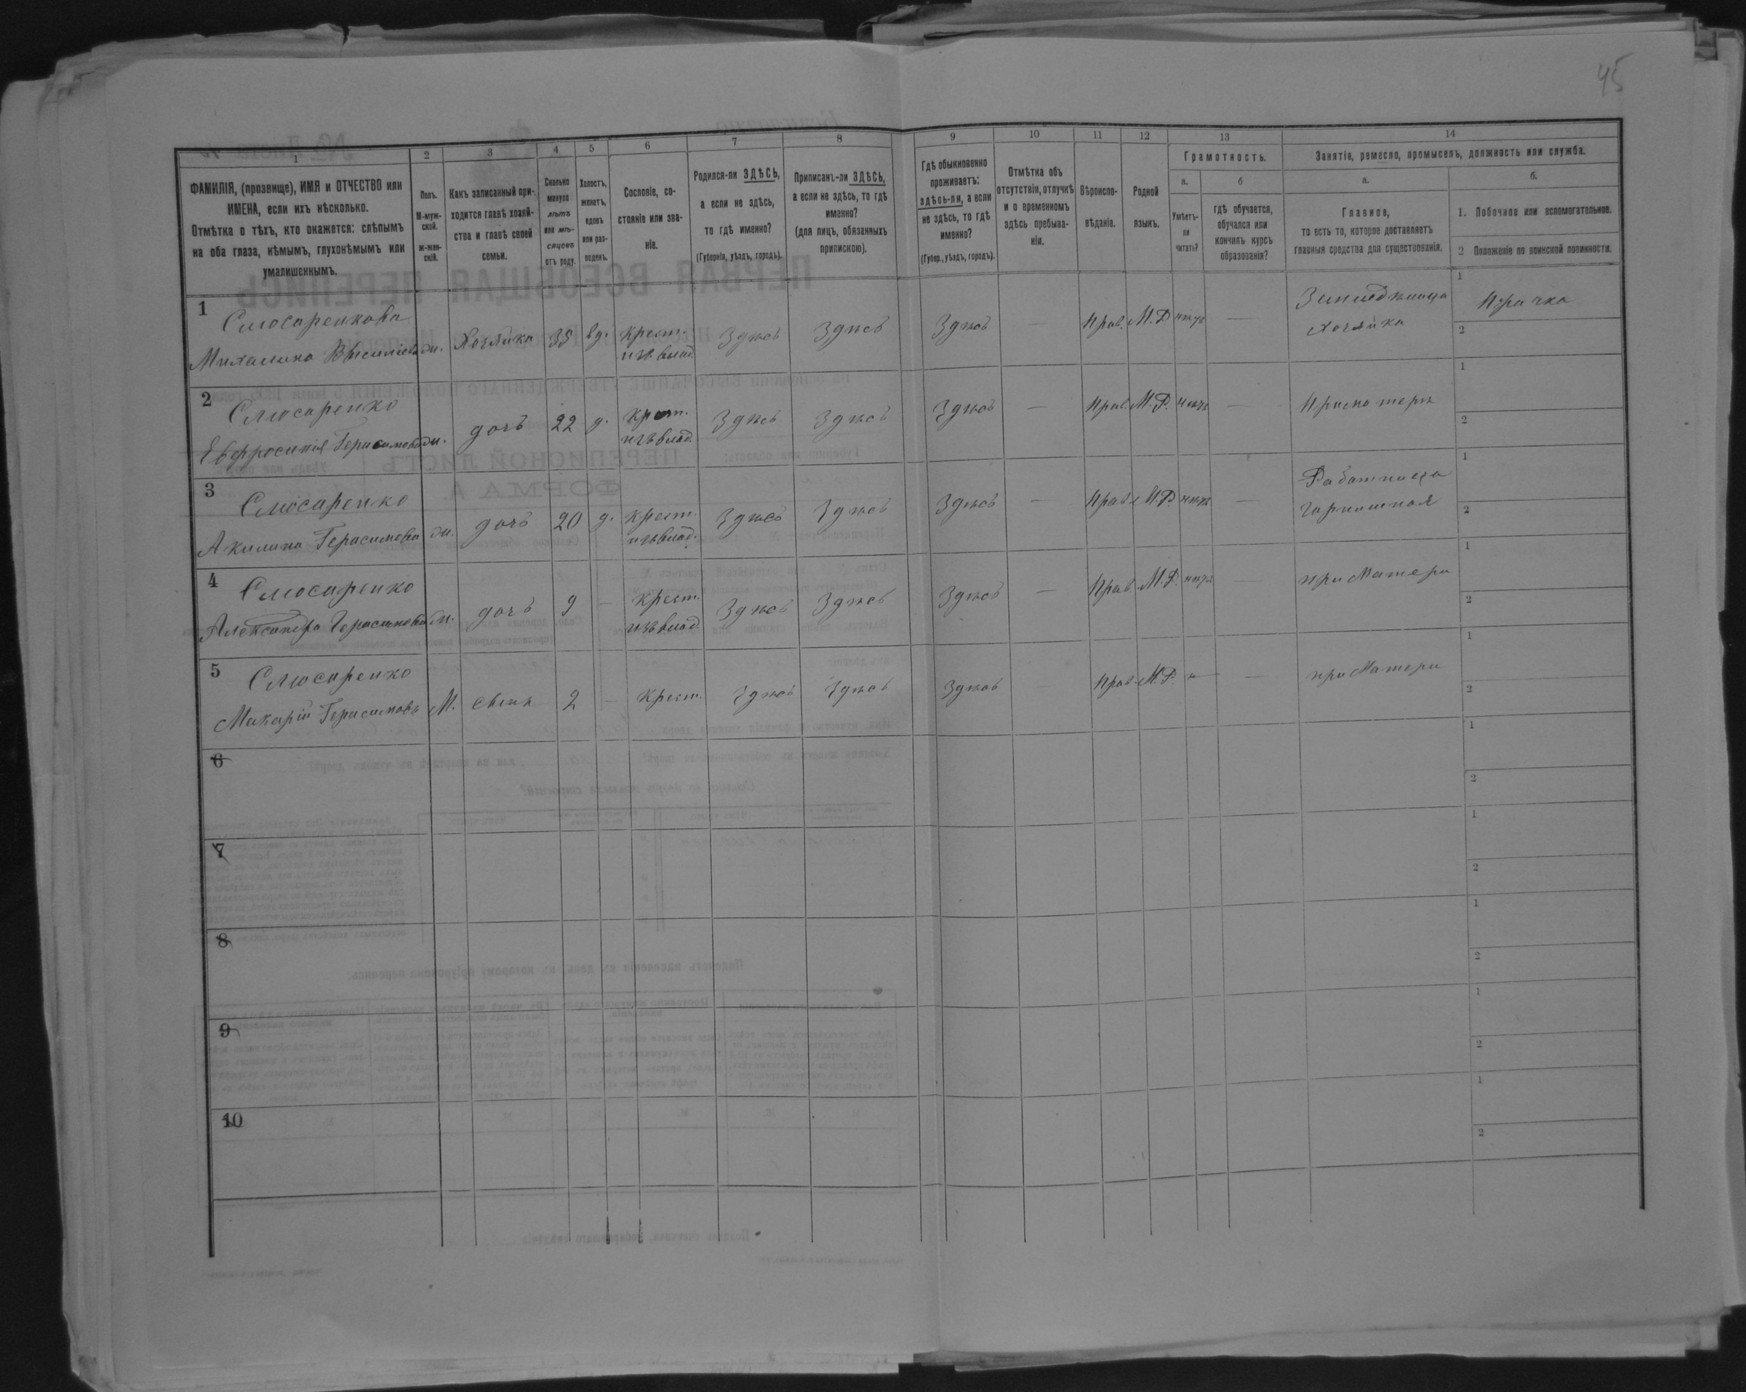 45
1 2 3 4 5 6 7 8 9 10 11 12 13 14
ФАМИЛІЯ, (прозвище), ИМЯ и ОТЧЕСТВО или
ИМЕНА, если ихъ нѣсколько.
Отмѣтка о тѣхъ, кто окажется: слѣпымъ
на оба глаза, нѣмымъ, глухонѣмымъ или
умалишеннымъ.
Полъ.
М-муж-
ской.
ж-жен-
скій.
Какъ записанный при-
ходится главѣ хозяй-
ства и главѣ своей
семьи.
Сколько
минуло
лѣтъ
или мѣ-
сяцевъ
отъ роду.
Холостъ,
женатъ,
вдовъ
или раз-
веденъ.
Сословіе, со-
стояніе или зва-
ніе.
Родился-ли ЗДѢСЬ,
а если не здѣсь,
то гдѣ именно?
(Губернія, уѣздъ, городъ).
Приписанъ-ли ЗДѢСЬ,
а если не здѣсь, то гдѣ
именно?
(для лицъ, обязанныхъ
припискою).
Гдѣ обыкновенно
проживаетъ:
здѣсь-ли, а если
не здѣсь, то гдѣ
именно?
(Губер., уѣздъ, городъ).
Отмѣтка объ
отсутствіи, отлучкѣ
и о временномъ
здѣсь пребыва-
ніи.
Вѣроиспо-
вѣданіе.
Родной
языкъ.
Грамотность.
а.
Умѣетъ-
ли
читать?
б
гдѣ обучается,
обучался или
кончилъ курсъ
образованія?
Занятія, ремесло, промыселъ, должность или служба.
а.
Главное,
то есть то, которое доставляетъ
главныя средства для существованія.
б.
1. Побочное или вспомогательное.
2 Положеніе по воинской повинности.
1 Слюсаренкова
Михалина Васильева ж. Хозяйка 38 вд. крест. изъ влад. Здѣсь Здѣсь Здѣсь — Прав. М.Р. нѣтъ — Земледѣлица хозяйка 1 Прачка
2
2 Слюсаренко
Евфросинія Герасимова ж. дочь 22 д. крест. изъ влад. Здѣсь Здѣсь Здѣсь — Прав. М.Р. нѣтъ — При матери 1
2
3 Слюсаренко
Акилина Герасимова ж. дочь 20 д. крест. изъ влад. Здѣсь Здѣсь Здѣсь — Прав. М.Р. нѣтъ — Работница горничная 1
2
4 Слюсаренко
Александра Герасимова ж. дочь 9 — крест. изъ влад. Здѣсь Здѣсь Здѣсь — Прав. М.Р. нѣтъ — при Матери 1
2
5 Слюсаренко
Макарій Герасимовъ М. сынъ 2 — крест. Здѣсь Здѣсь Здѣсь Прав. М.Р. н — при Матери 1
2
6 1
2
7 1
2
8 1
2
9 1
2
10 1
2